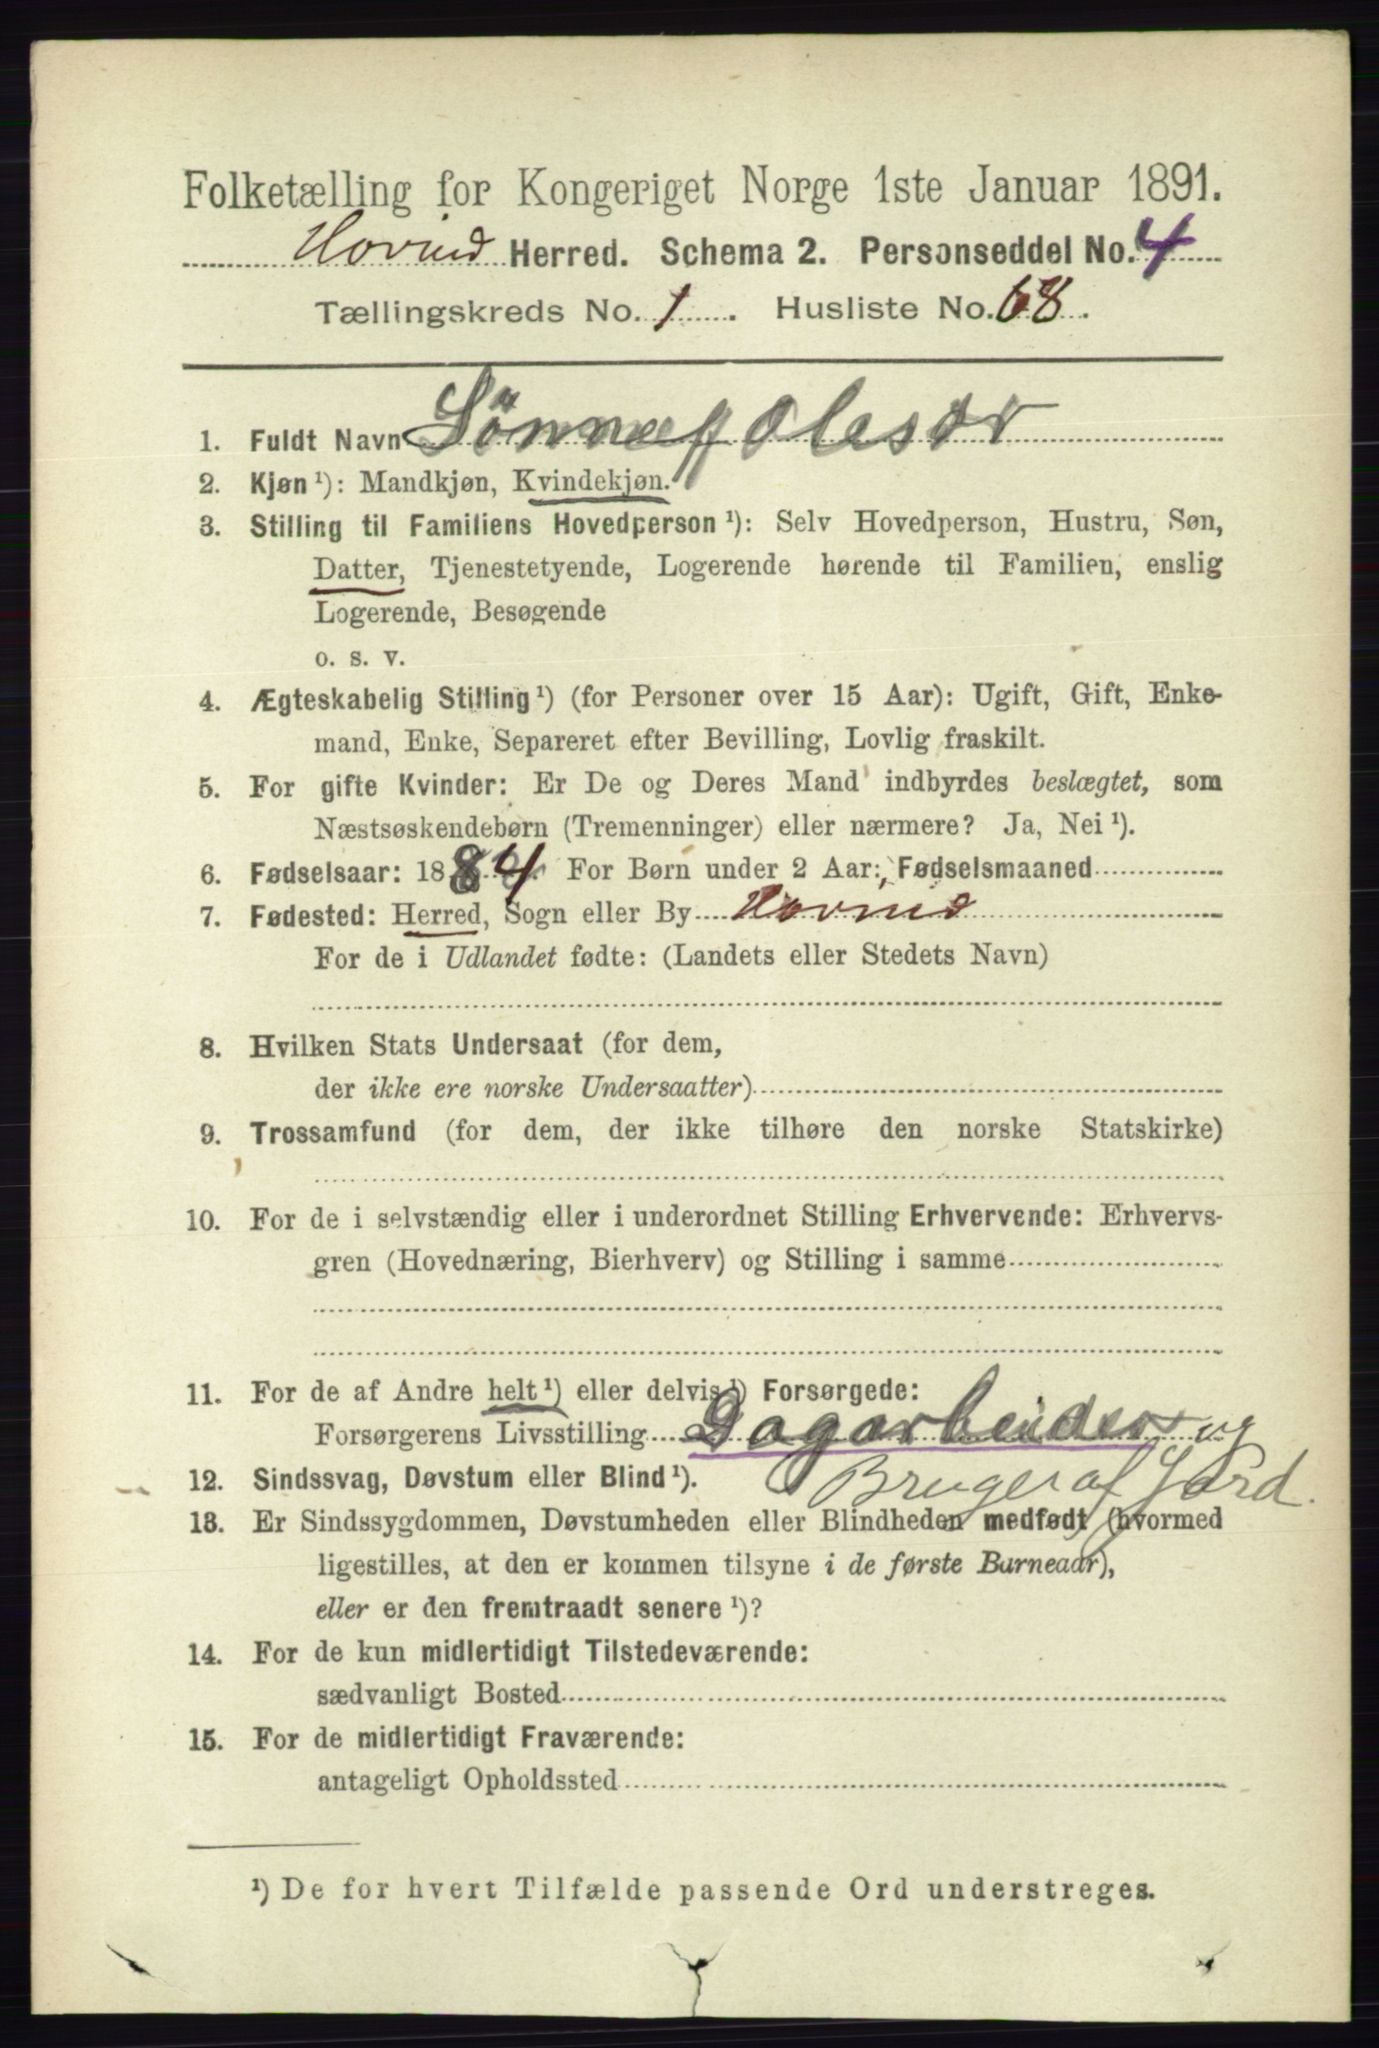 Folketælling for Kongeriget Norge 1ste Januar 1891.
Hovind Herred. Schema 2. Personseddel No. 4
Tællingskreds No. 1. Husliste No. 68.
1. Fuldt Navn Sönnef Olesdr
2. Kjøn ¹): Mandkjøn, Kvindekjøn.
3. Stilling til Familiens Hovedperson ¹): Selv Hovedperson, Hustru, Søn,
Datter, Tjenestetyende, Logerende hørende til Familien, enslig
Logerende, Besøgende
o. s. v.
4. Ægteskabelig Stilling ¹) (for Personer over 15 Aar): Ugift, Gift, Enke-
mand, Enke, Separeret efter Bevilling, Lovlig fraskilt.
5. For gifte Kvinder: Er De og Deres Mand indbyrdes beslægtet, som
Næstsøskendebørn (Tremenninger) eller nærmere? Ja, Nei ¹).
6. Fødselsaar: 1884. For Børn under 2 Aar: Fødselsmaaned
7. Fødested: Herred, Sogn eller By Hovind
For de i Udlandet fødte: (Landets eller Stedets Navn)
8. Hvilken Stats Undersaat (for dem,
der ikke ere norske Undersaatter)
9. Trossamfund (for dem, der ikke tilhøre den norske Statskirke)
10. For de i selvstændig eller i underordnet Stilling Erhvervende: Erhvervs-
gren (Hovednæring, Bierhverv) og Stilling i samme
11. For de af Andre helt ¹) eller delvis ¹) Forsørgede:
Forsørgerens Livsstilling Dagarbeider og
Bruger af Jord.
12. Sindssvag, Døvstum eller Blind ¹).
13. Er Sindssygdommen, Døvstumheden eller Blindheden medfødt (hvormed
ligestilles, at den er kommen tilsyne i de første Barneaar),
eller er den fremtraadt senere ¹)?
14. For de kun midlertidigt Tilstedeværende:
sædvanligt Bosted
15. For de midlertidigt Fraværende:
antageligt Opholdssted
¹) De for hvert Tilfælde passende Ord understreges.